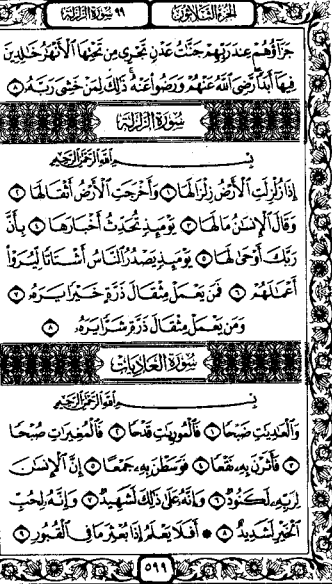 الجزء الثلاثون ٩٩ سورة الزلزلة
جَزَآؤُهُمْ عِندَ رَبِّهِمْ جَنَّٰتُ عَدْنٍ تَجْرِى مِن تَحْتِهَا ٱلْأَنْهَٰرُ خَٰلِدِينَ
فِيهَآ أَبَدًا رَّضِىَ ٱللَّهُ عَنْهُمْ وَرَضُوا۟ عَنْهُ ذَٰلِكَ لِمَنْ خَشِىَ رَبَّهُۥ ٨
سُورَةُ الزَّلْزَلَةِ
بِسْمِ ٱللَّهِ ٱلرَّحْمَٰنِ ٱلرَّحِيمِ
إِذَا زُلْزِلَتِ ٱلْأَرْضُ زِلْزَالَهَا ١ وَأَخْرَجَتِ ٱلْأَرْضُ أَثْقَالَهَا ٢
وَقَالَ ٱلْإِنسَٰنُ مَالَهَا ٣ يَوْمَئِذٍ تُحَدِّثُ أَخْبَارَهَا ٤ بِأَنَّ
رَبَّكَ أَوْحَىٰ لَهَا ٥ يَوْمَئِذٍ يَصْدُرُ ٱلنَّاسُ أَشْتَاتًا لِّيُرَوْا۟
أَعْمَٰلَهُمْ ٦ فَمَن يَعْمَلْ مِثْقَالَ ذَرَّةٍ خَيْرًا يَرَهُۥ ٧
وَمَن يَعْمَلْ مِثْقَالَ ذَرَّةٍ شَرًّا يَرَهُۥ ٨
سُورَةُ العَادِيَاتِ
بِسْمِ ٱللَّهِ ٱلرَّحْمَٰنِ ٱلرَّحِيمِ
وَٱلْعَٰدِيَٰتِ ضَبْحًا ١ فَٱلْمُورِيَٰتِ قَدْحًا ٢ فَٱلْمُغِيرَٰتِ صُبْحًا
٣ فَأَثَرْنَ بِهِۦ نَقْعًا ٤ فَوَسَطْنَ بِهِۦ جَمْعًا ٥ إِنَّ ٱلْإِنسَٰنَ
لِرَبِّهِۦ لَكَنُودٌ ٦ وَإِنَّهُۥ عَلَىٰ ذَٰلِكَ لَشَهِيدٌ ٧ وَإِنَّهُۥ لِحُبِّ
ٱلْخَيْرِ لَشَدِيدٌ ٨ ۞ أَفَلَا يَعْلَمُ إِذَا بُعْثِرَ مَا فِى ٱلْقُبُورِ ٩
٥٩٩